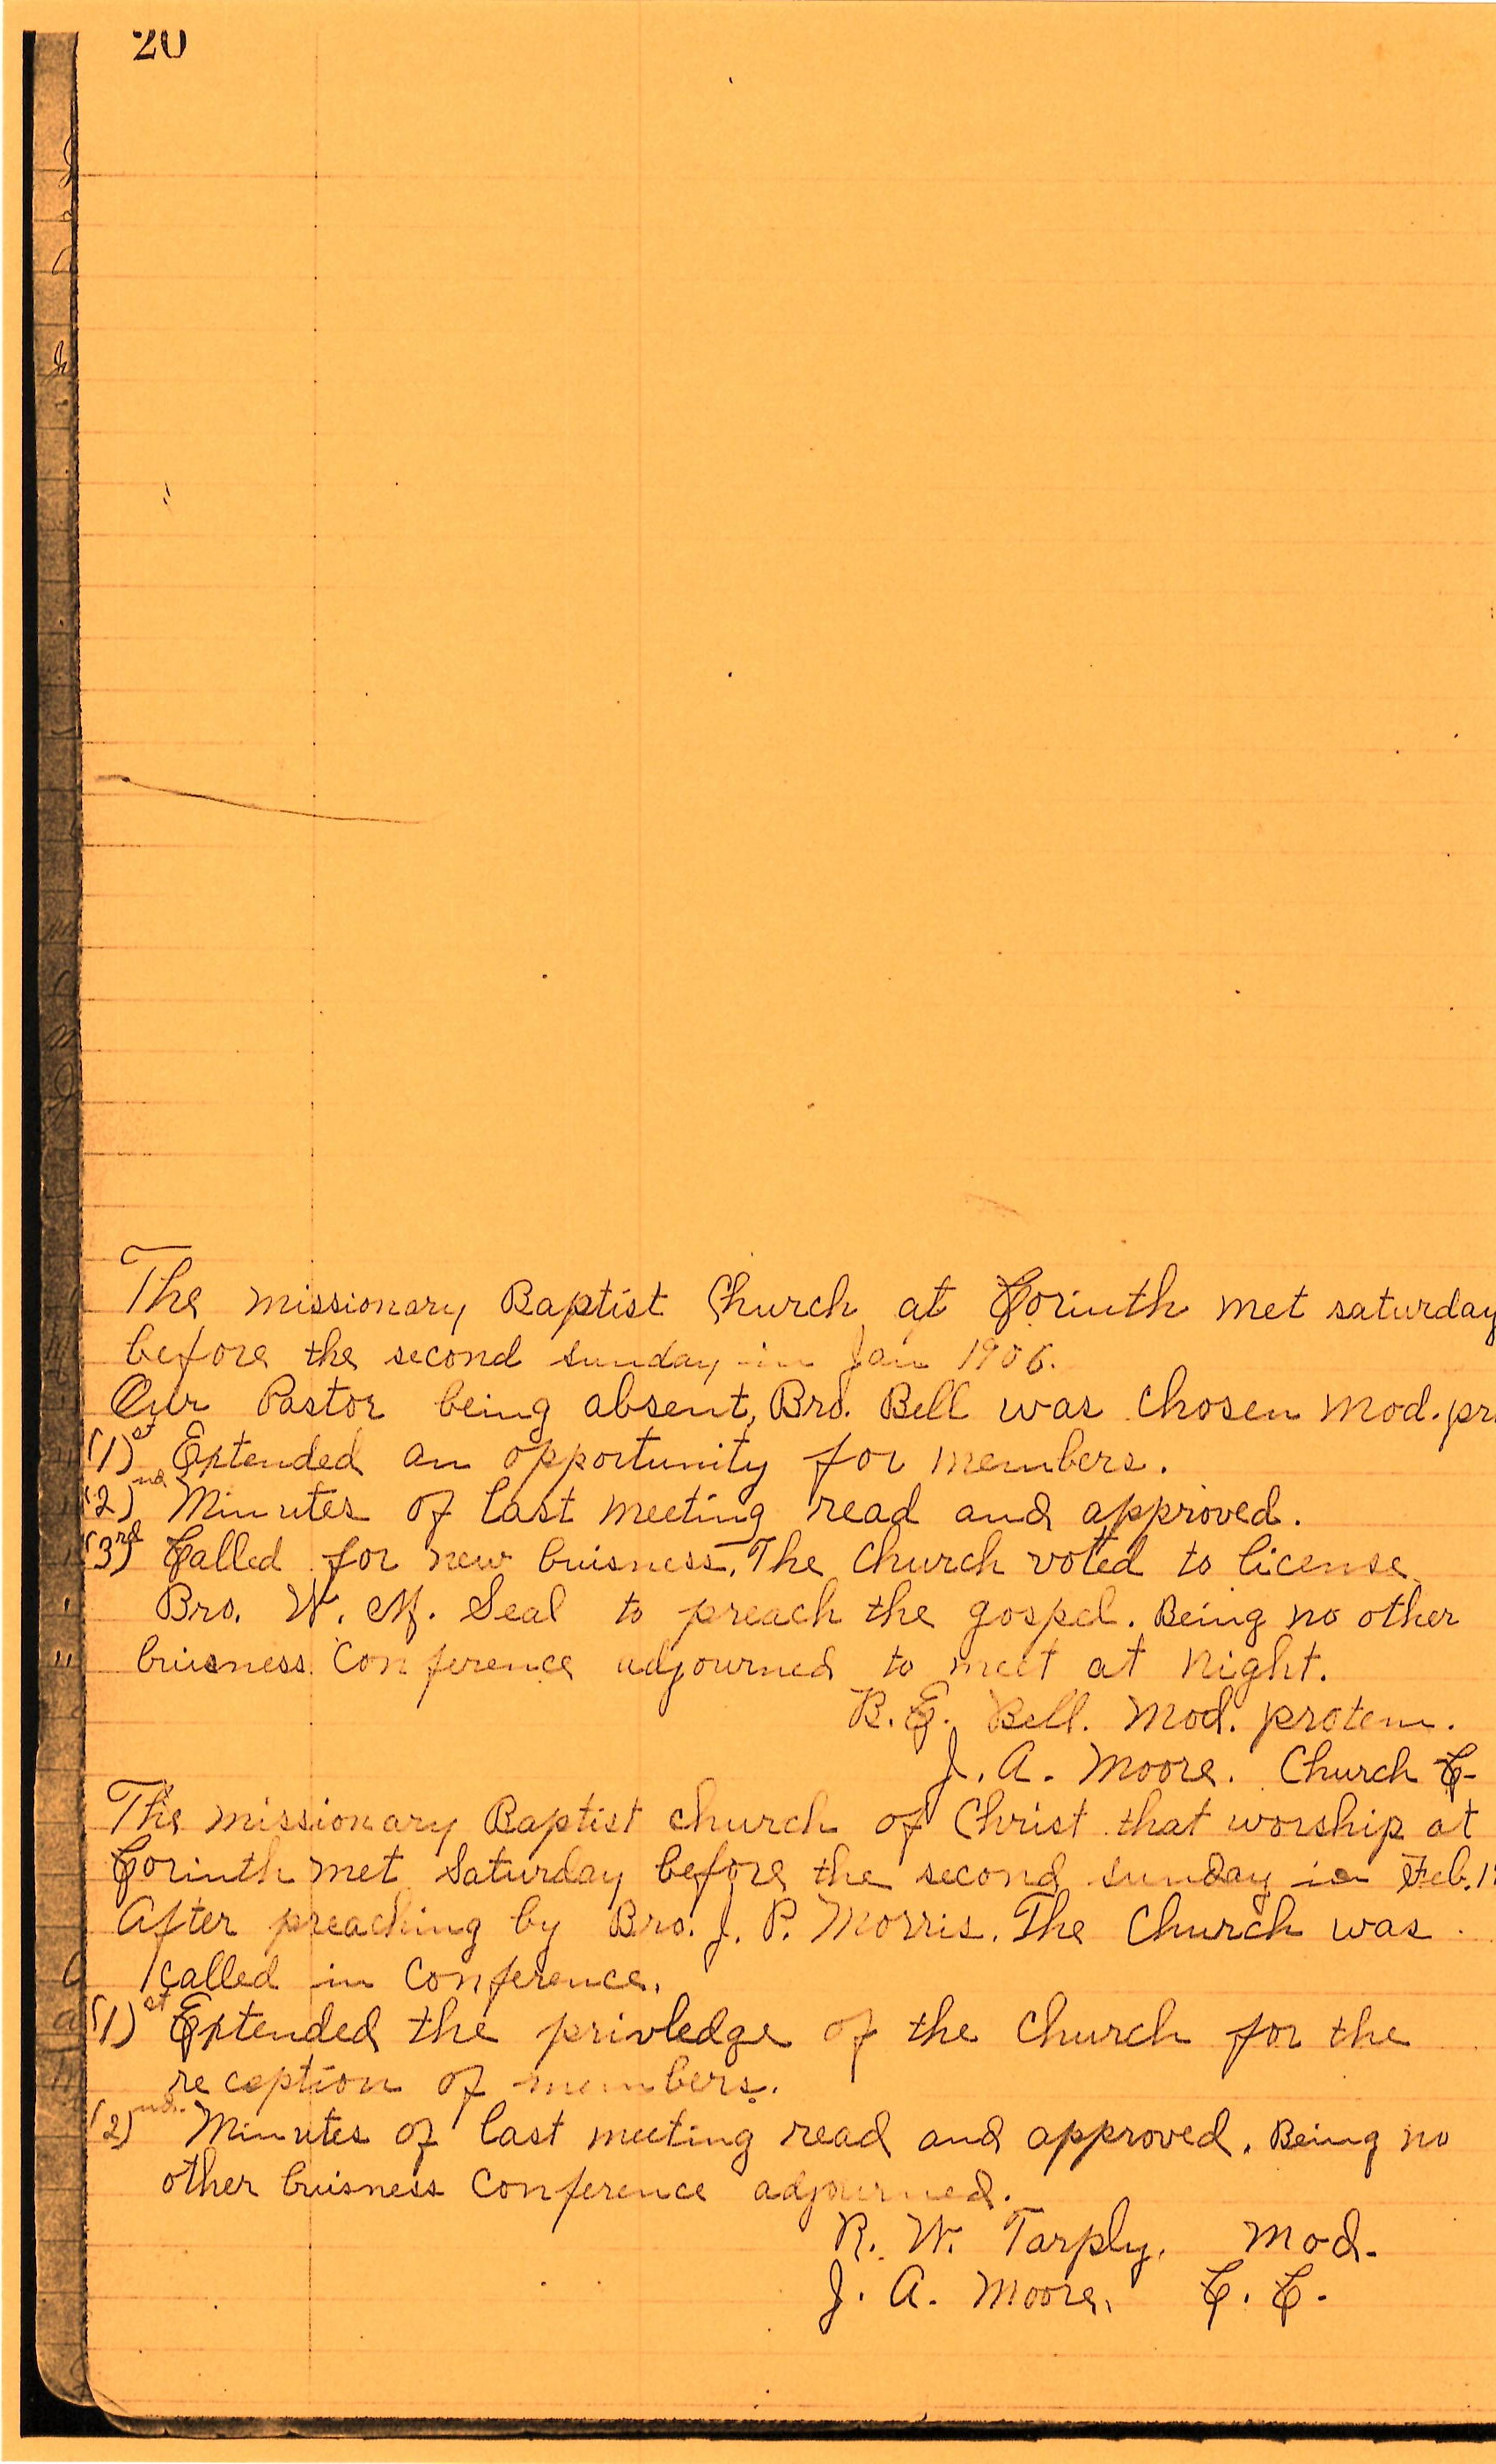 20
The missionary Baptist Church at Corinth met saturday
before the second sunday in Jan 1906.
Our Pastor being absent, Bro. Bell was chosen Mod. pr
(1)st Extended an opportunity for members.
(2)nd Minutes of last meeting read and approved.
(3)rd Called for new buisness. The church voted to license
Bro. W. M. Seal to preach the gospel. Being no other
buisness Conference adjourned to meet at night.
B. E. Bell. Mod. protem.
J. A. Moore. Church C-
The missionary Baptist church of Christ that worship at
Corinth met Saturday before the second sunday in Feb. 1
After preaching by Bro. J. P. Morris. The Church was
called in Conference.
(1)st Extended the privledge of the Church for the
reception of members.
(2)nd Minutes of last meeting read and approved. Being no
other buisness Conference adjourned.
R. W. Tarply. Mod.
J. A. Moore. C. C.